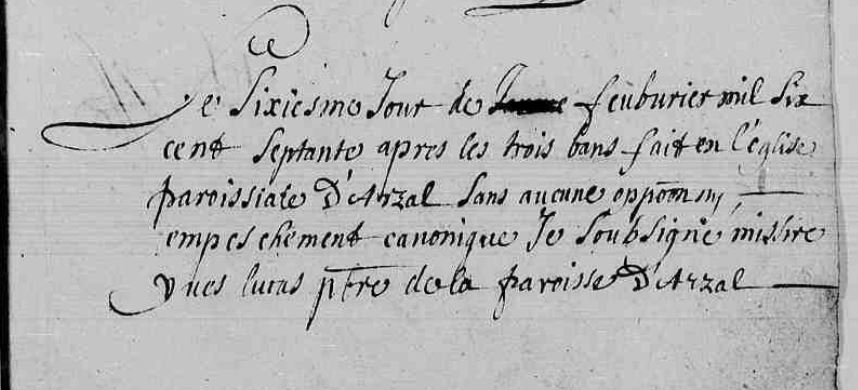 Le sixiesme Jour de feuburier mil six
cent septante apres les trois bans fait en l'église
paroissiale D'Arzal sans aucune oppõon ny
empeschement canonique Je soubsigné missire
yues lucas ptre de la paroisse D'Arzal